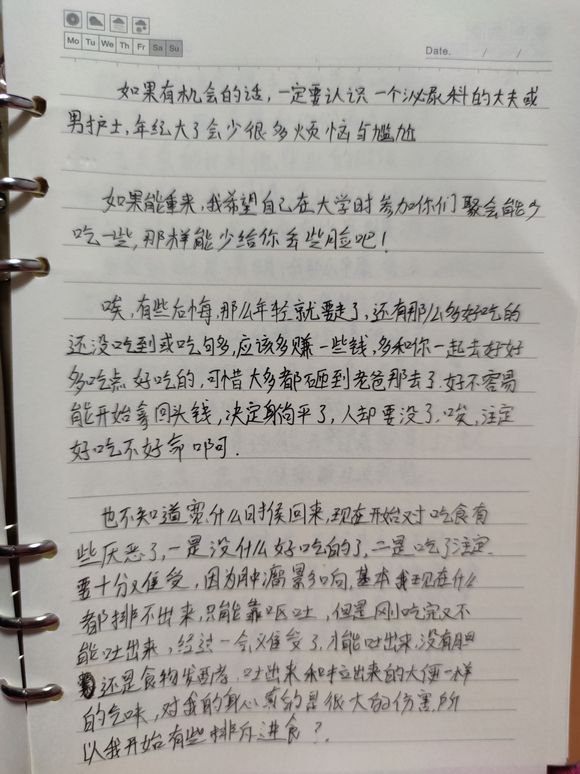 Mo Tu We Th Fr Sa Su
Date. / /
如果有机会的话，一定要认识一个泌尿科的大夫或
男护士，年纪大了会少很多烦恼与尴尬
如果能重来，我希望自己在大学时参加你们聚会能少
吃一些，那样能少给你丢些脸吧！
唉，有些后悔，那么年轻就要走了，还有那么多好吃的
还没吃到或吃句多，应该多赚一些钱，多和你一起去好好
多吃点好吃的，可惜大多都砸到老爸那去了。好不容易
能开始拿回头钱，决定躺平了，人却要没了。唉，注定
好吃不好命啊。
也不知道 什么时候回来，现在开始对吃食有
些厌恶了，一是没什么好吃的了，二是吃了注定
要十分难受，因为肿瘤影响，基本我现在什么
都排不出来，只能靠呕吐，但是刚吃完又不
能吐出来，经过一会难受了，才能吐出来，没有胆
还是食物发酵，吐出来和拉出来的大便一样
的气味，对我的身心真的是很大的伤害，所
以我开始有些排斥进食？